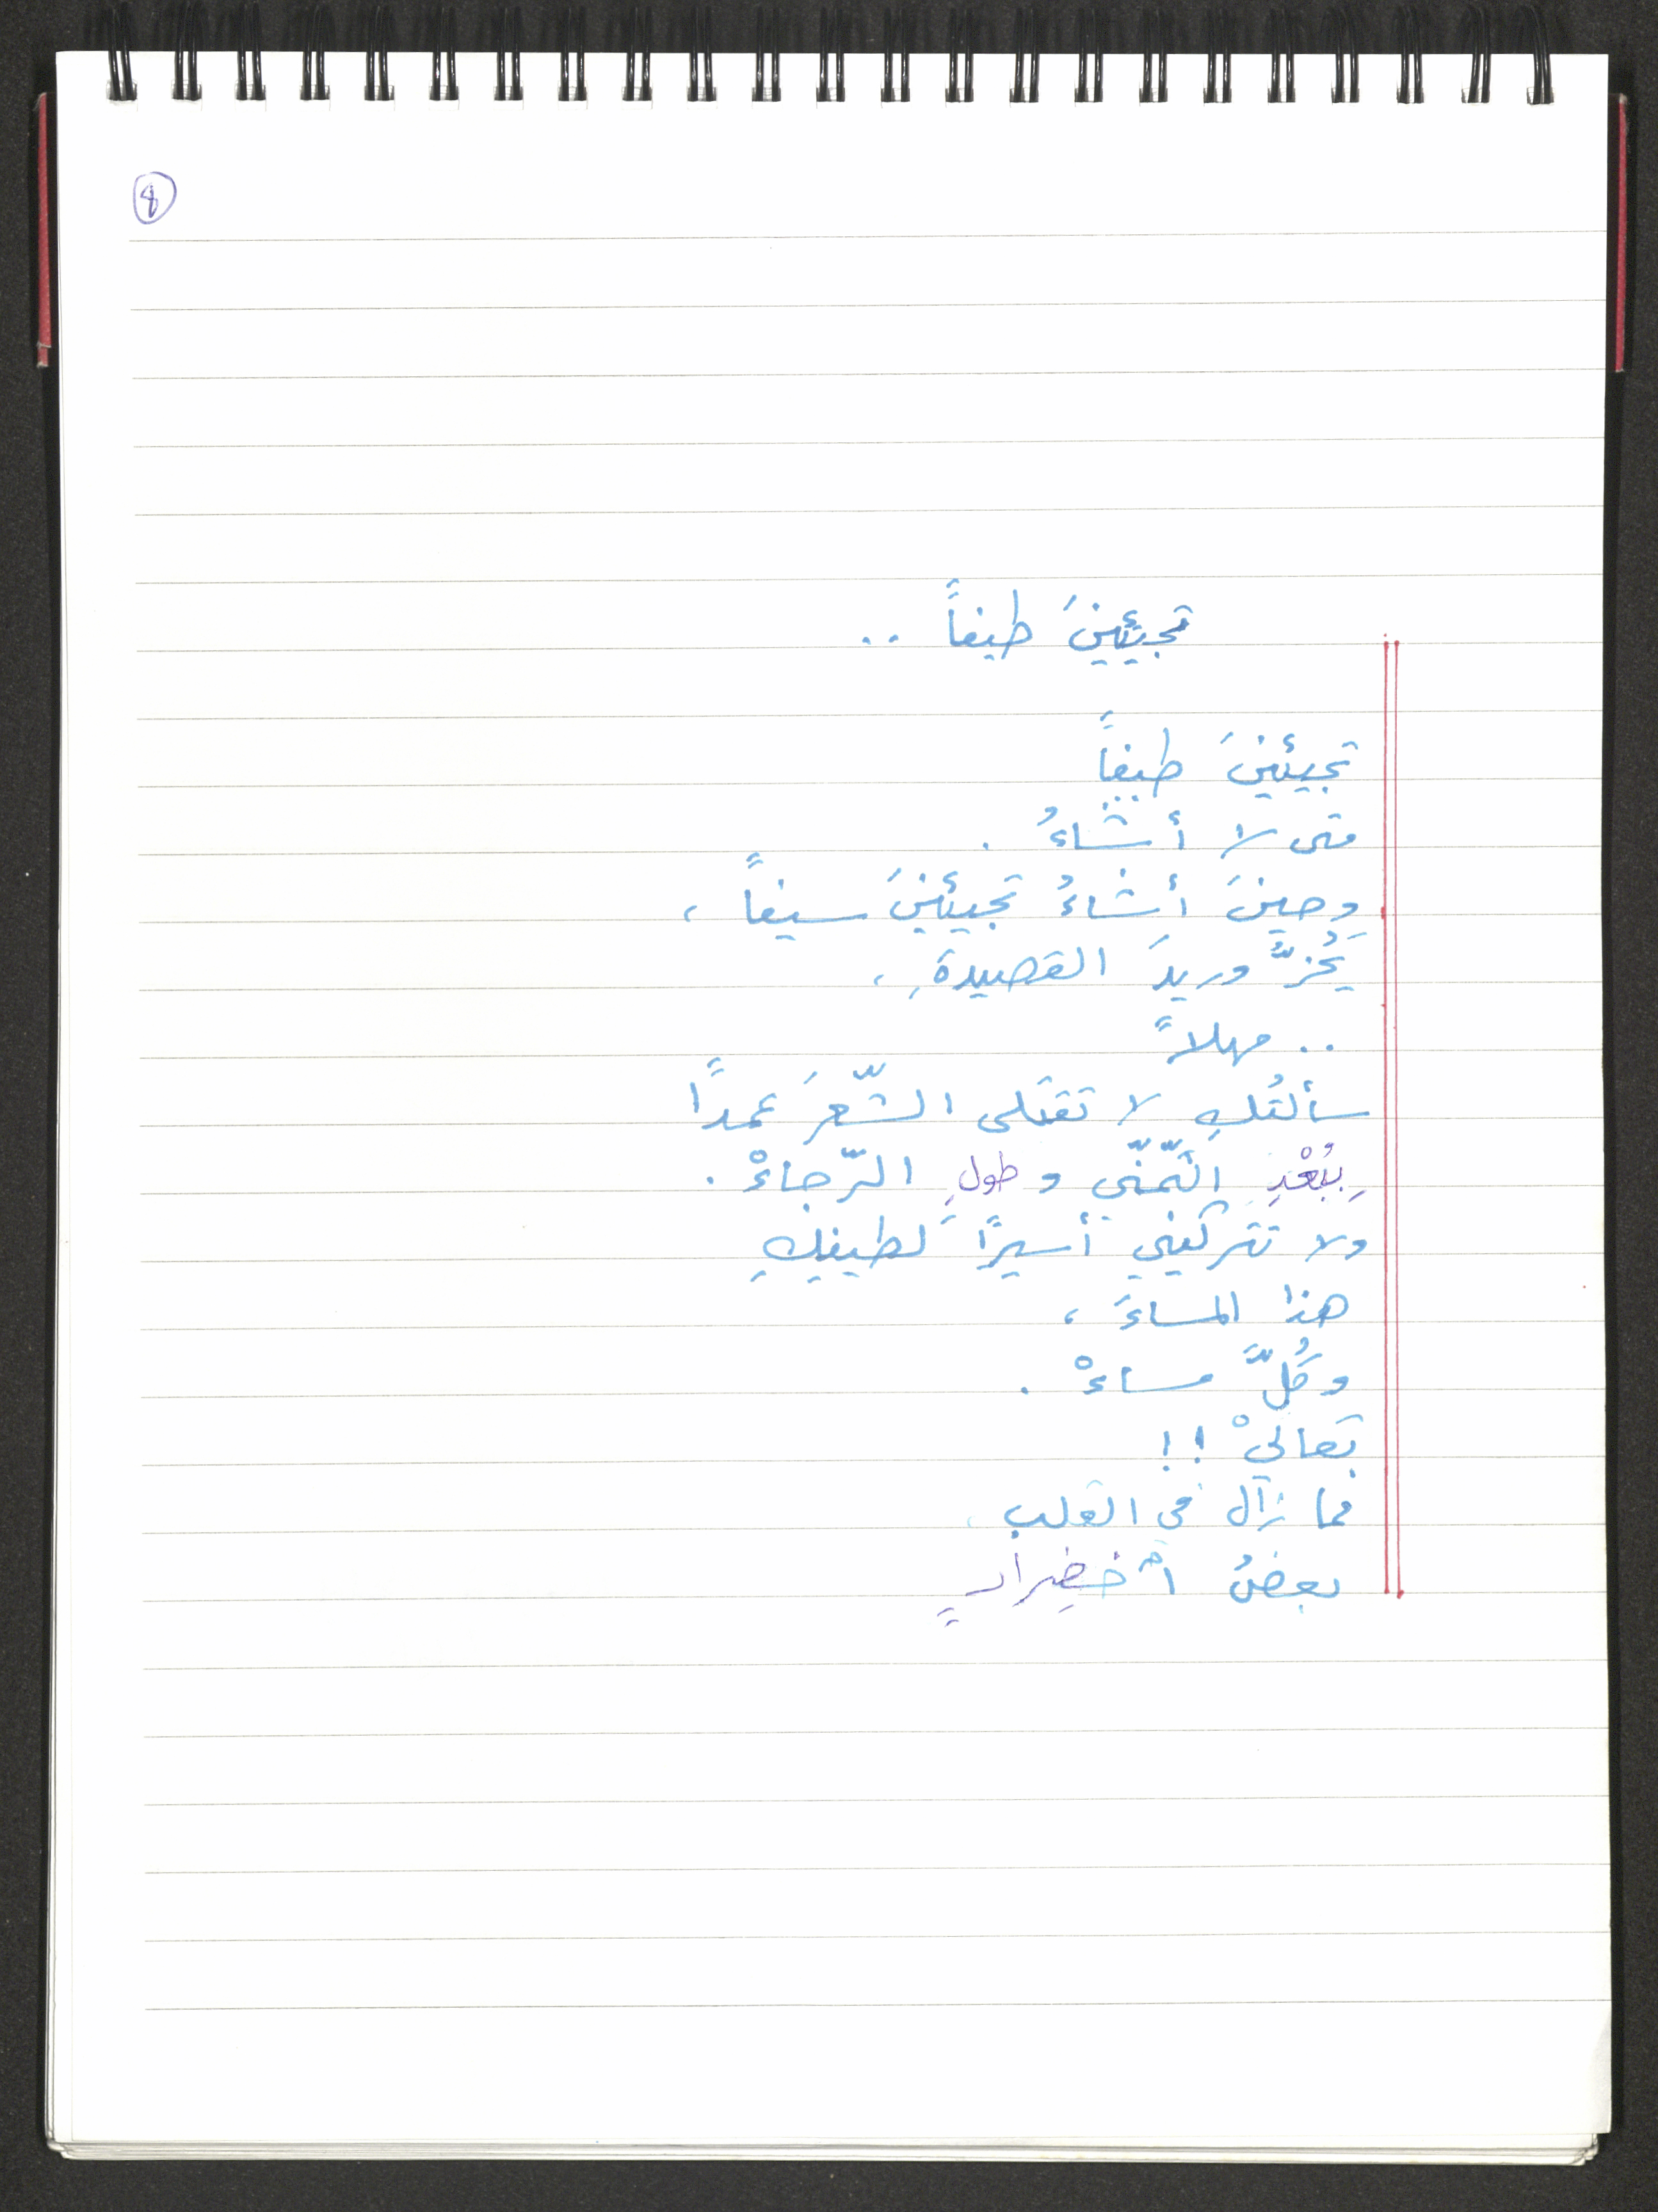 8
تجيئينَ طيفاً ..
تجيئينَ طيفاً
متى لا أشاءُ .
وحينَ أشاءُ تجيئينَ سيفاً ،
يَحُزُّ وريدَ القصيدةِ ،
.. مهلاً
سألتُكِ لا تقتلى الشّعرَ عمدًا
بِبُعْدِ التَّمنّي وطولِ الرّجاءْ .
ولا تتركيني أسيرًا لطيفِكِ
هذا المساءَ ،
وكُلَّ مساءْ .
تعالَيْ !!
فما زال في القلب
بعضُ اخضِرارٍ